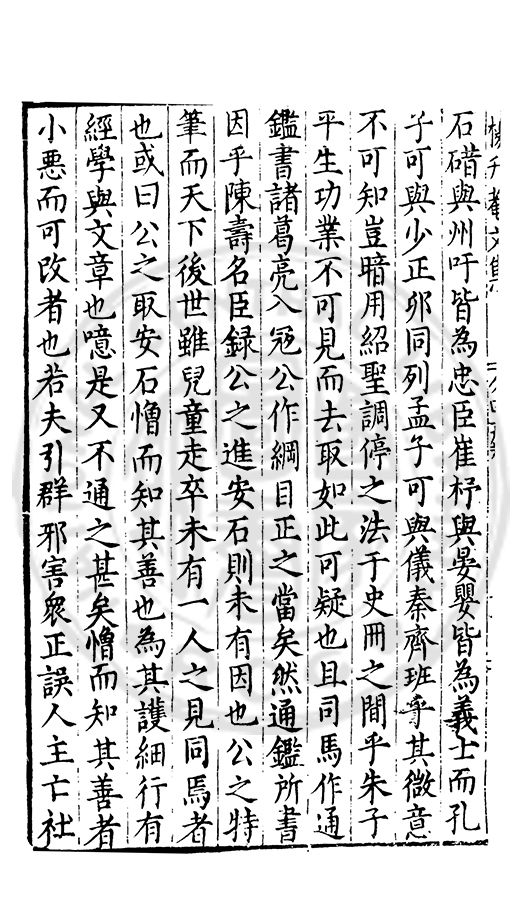 石碏與州吁皆為忠臣崔杼與晏嬰皆為義士而孔
子可與少正卯同列孟子可與儀秦齊班乎其微意
不可知豈暗用紹聖調停之法于史冊之間乎朱子
平生功業不可見而去取如此可疑也且司馬作通
鑑書諸葛亮入冦公作綱目正之當矣然通鑑所書
因乎陳壽名臣録公之進安石則未有因也公之特
筆而天下後世雖兒童走卒未有一人之見同焉者
也或曰公之取安石憎而知其善也為其護細行有
經學與文章也噫是又不通之甚矣憎而知其善者
小悪而可改者也若夫引群邪害衆正誤人主亡社